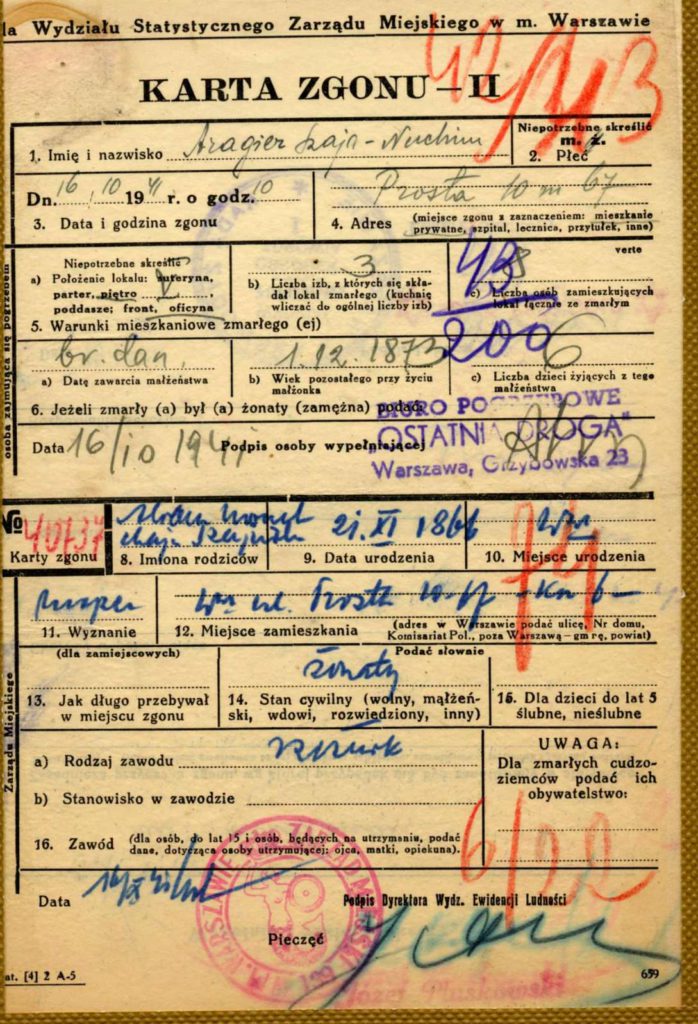 la Wydziału Statystycznego Zarządu Miejskiego w m. Warszawie
KARTA ZGONU — II
42/313
1. Imię i nazwisko Aragier Szaja-Nuchim
Niepotrzebne skreślić
m. ż.
2. Płeć
Dn. 16/10 1941 r. o godz. 10
3. Data i godzina zgonu
Prosta 10 m 67
4. Adres (miejsce zgonu z zaznaczeniem: mieszkanie
prywatne, szpital, lecznica, przytułek, inne)
osoba zajmująca się pogrzebem
Niepotrzebne skreślić
a) Położenie lokalu: suteryna,
parter, piętro V,
poddasze; front, oficyna
3
b) Liczba izb, z których się skła-
dał lokal zmarłego (kuchnię
wliczać do ogólnej liczby izb)
verte
43
200
c) Liczba osób zamieszkujących
lokal łącznie ze zmarłym
5. Warunki mieszkaniowe zmarłego (ej)
br. dan.
a) Datę zawarcia małżeństwa
1.12.1873
b) Wiek pozostałego przy życiu
małżonka
6
c) Liczba dzieci żyjących z tego
małżeństwa
6. Jeżeli zmarły (a) był (a) żonaty (zamężna) podać
BIURO POGRZEBOWE
"OSTATNIA DROGA"
Warszawa, Grzybowska 23
Data 16/10 1941 Podpis osoby wypełniającej
№ 40737
Karty zgonu
8. Imiona rodziców
21. XI 1866
9. Data urodzenia
10. Miejsce urodzenia
74
11. Wyznanie
12. Miejsce zamieszkania (adres w Warszawie podać ulicę, Nr domu,
Komisariat Pol., poza Warszawą — gminę, powiat)
(dla zamiejscowych)
Podać słownie
żonaty
13. Jak długo przebywał
w miejscu zgonu
14. Stan cywilny (wolny, małżeń-
ski, wdowi, rozwiedziony, inny)
15. Dla dzieci do lat 5
ślubne, nieślubne
Zarządu Miejskiego
a) Rodzaj zawodu
b) Stanowisko w zawodzie
16. Zawód (dla osób, do lat 15 i osób, będących na utrzymaniu, podać
dane, dotyczące osoby utrzymującej: ojca, matki, opiekuna).
UWAGA:
Dla zmarłych cudzo-
ziemców podać ich
obywatelstwo:
Data
Podpis Dyrektora Wydz. Ewidencji Ludności
Pieczęć
at. [4] 2 A-5
659